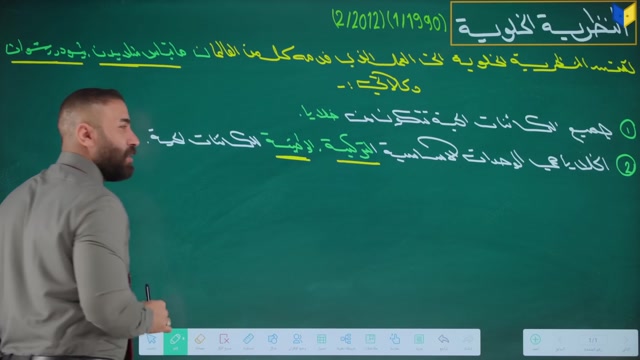 النظرية الخلوية (1/1990) (2/2012)
تستند النظرية الخلوية الى العمل الذي قدمه كل من العالمان ماثياس شلايدن، ثيودور شوان
وكالآتي :-
① جميع الكائنات الحية تتكون من خلايا.
② الخلايا هي الوحدات الاساسية التركيبية، الوظيفية الكائنات الحية.